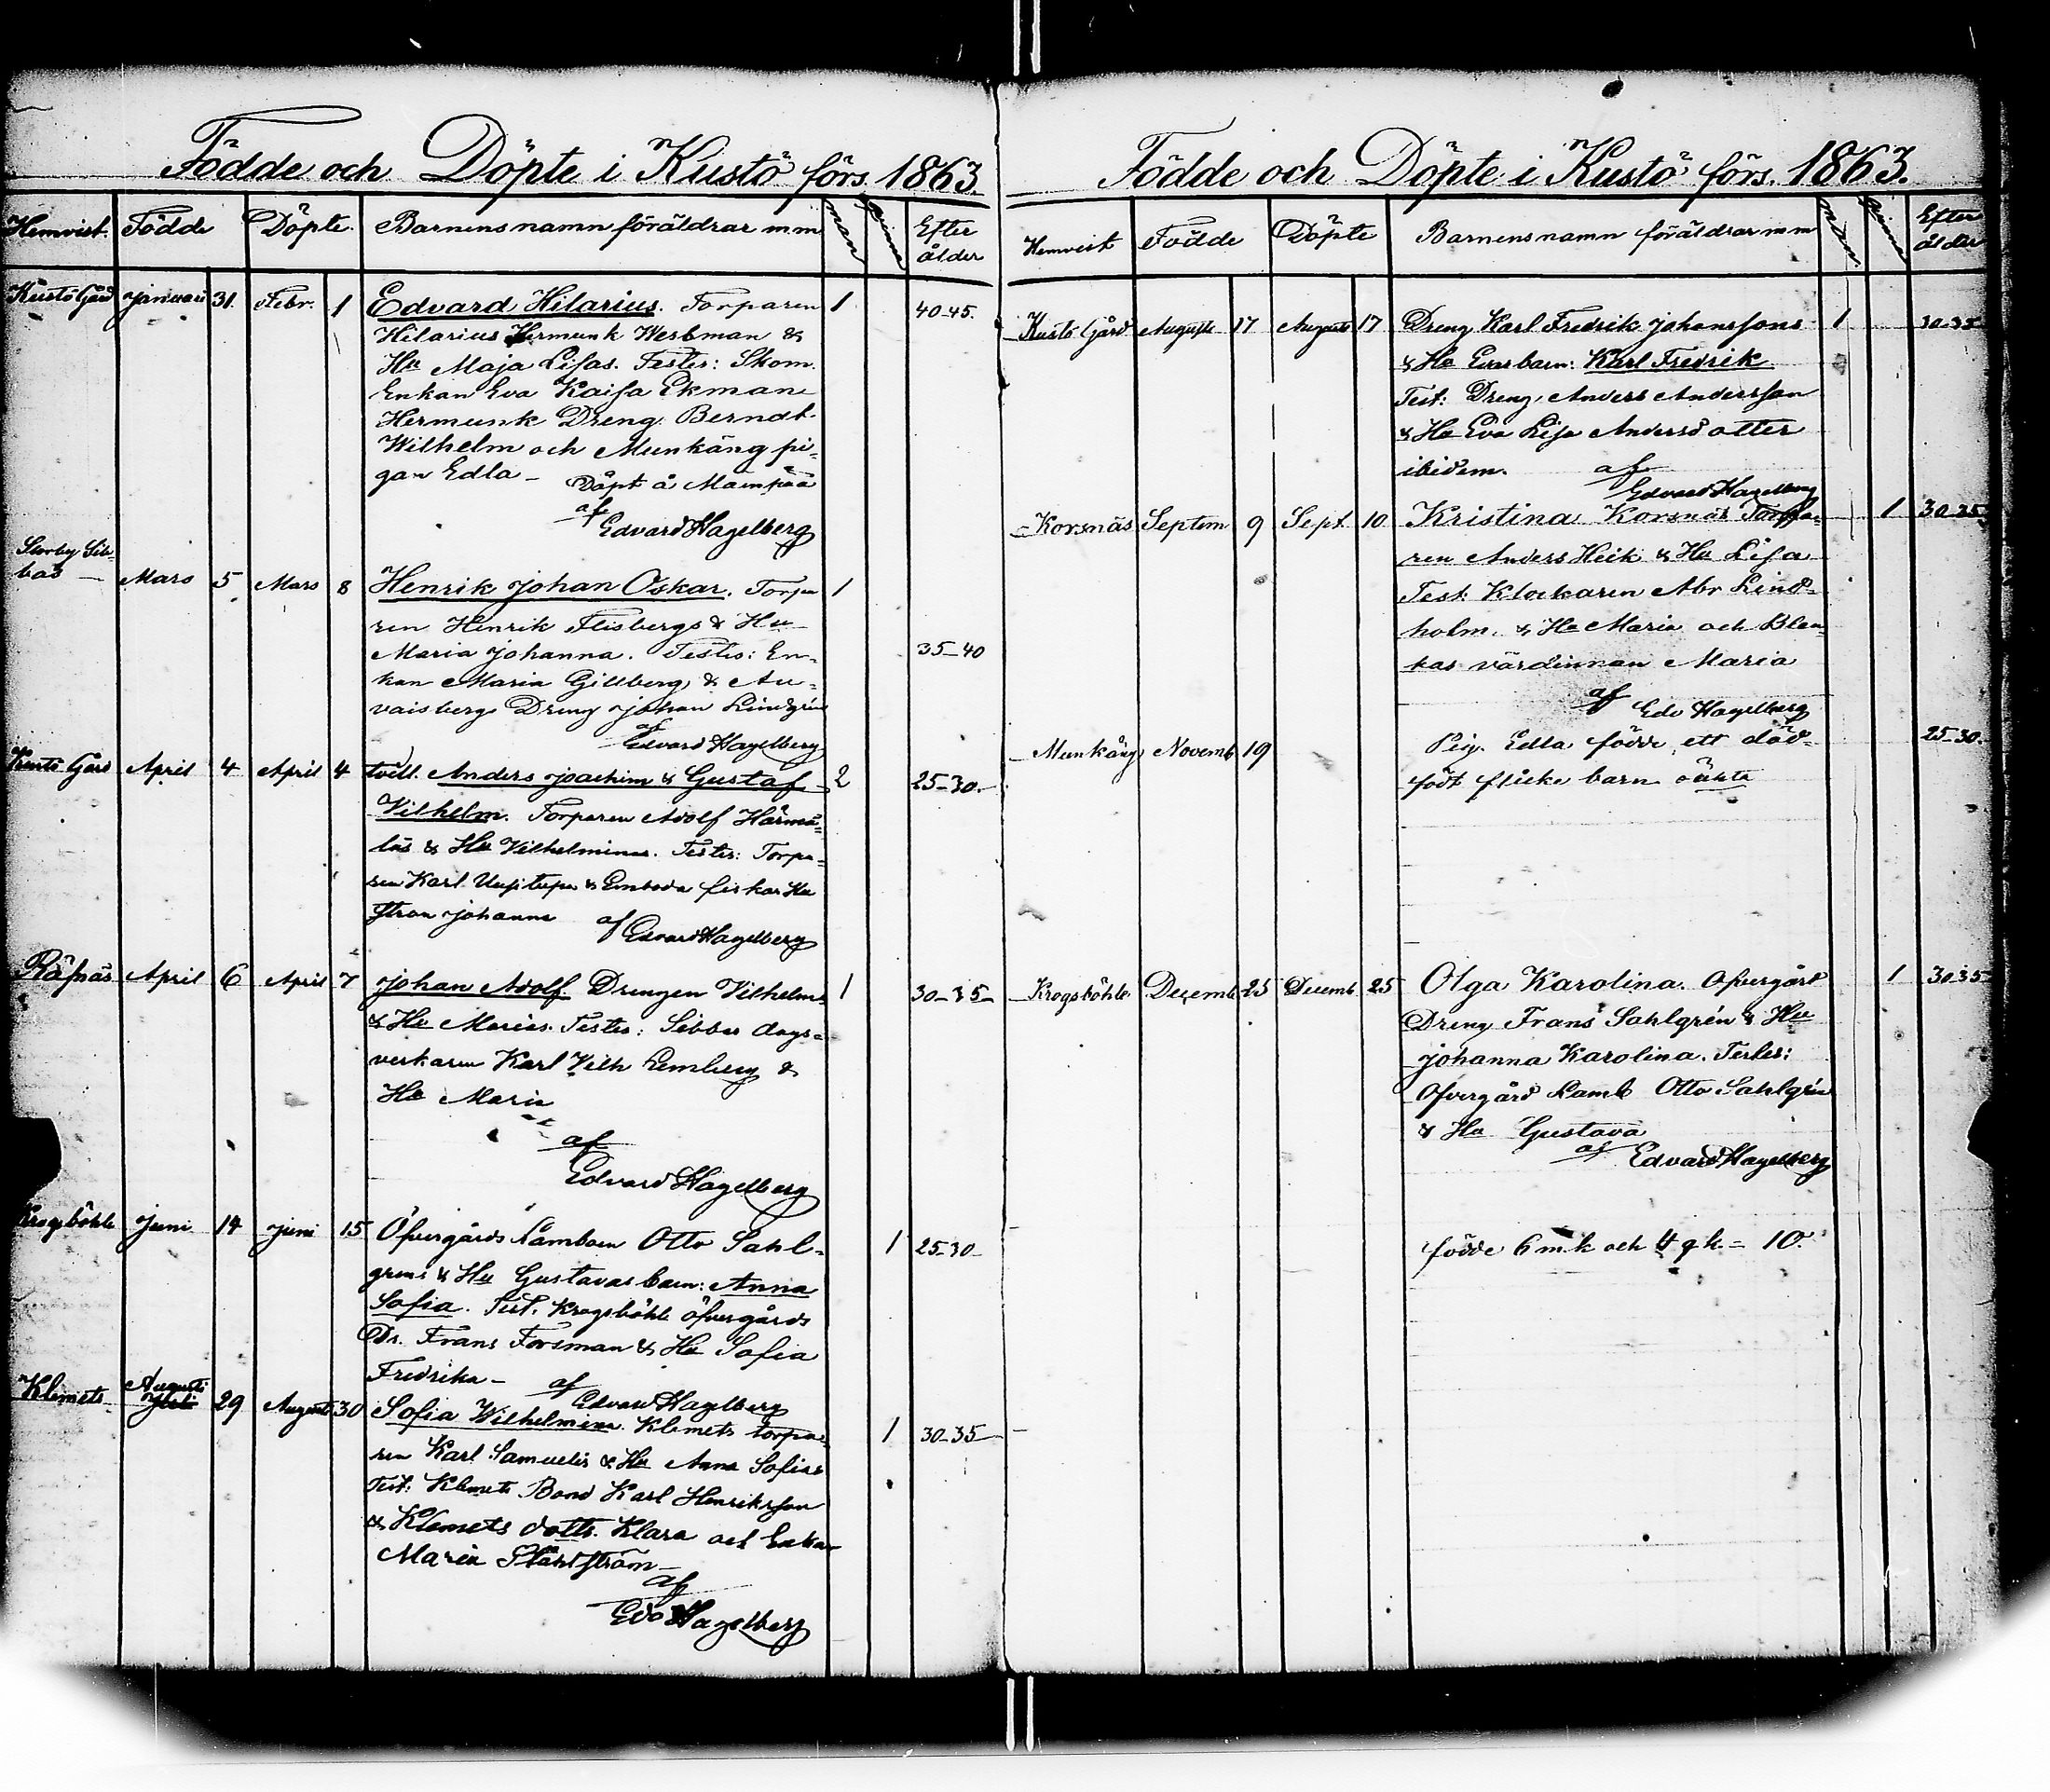 Födde och Döpte i Kustö förs. 1863
Hemvist. Födde Döpte. Barnens namn föräldrar m m man qvinn Efter ålder
Kustö Gård Januari 31. Febr. 1 Edvard Hilarius. Torparen 1 40-45.
Hilarius Hermunk Westman &
Hu Maja Lisas. Testes: Skom.
Enkan Eva Kaisa Ekman
Hermunk Dreng Berndt
Wilhelm och Munkäng pi-
gan Edla - Döpt å
af
Edvard Hagelberg
Storby Sib-
bas - Mars 5 Mars 8 Henrik Johan Oskar. Torpa 1
ren Henrik Flisbergs & Hu
Maria Johanna. Testes: En- 35-40
kan Maria Gillberg & Au-
vaisbergs Dreng Johan Lindgrén
af
Edvard Hagelberg
Kustö Gård April 4 April 4 tvill. Anders Joachim & Gustaf 2 25-30.
Vilhelm. Torparen Adolf Härmä-
läs & Hu Vilhelminas. Testes: Torpa-
ren Karl & fiskar Hu
strun Johanna af Edvard Hagelberg
Räfnäs April 6 April 7 Johan Adolf. Drengen Vilhelms 1 30-35-
& Hu Marias. Testes: Sibbas dags-
verkaren Karl Vilh Lemberg &
Hu Maria
af
Edvard Hagelberg
Krogsböhle Juni 14 Juni 15 Öfvergårds Lamboen Otto Sahl- 1 25-30
grens & Hu Gustavas barn: Anna
Sofia. Test. Krogsböhle öfvergårds
Dr. Frans Forsman & Hu Sofia
Fredrika - af
Edvard Hagelberg
Klemets Augusti 29 Augusti 30 Sofia Wilhelmina. Klemets torpa- 1 30-35
ren Karl Samuelis & Hu Anna Sofias
Test: Klemets Bond Karl Henriksson
& Klemets dottr. Klara och Enkan
Maria Ståhlström
af
Edv Hagelberg
Födde och Döpte i Kustö förs. 1863.
Hemvist Födde Döpte Barnens namn föräldrar m m man. qvinn Efter ålder
Kustö Gård Augusti 17 Augusti 17 Dreng Karl Fredrik Johanssons 1 30-35
& Hu Evas barn: Karl Fredrik
Test: Dreng Anders Andersson
& Hu Eva Lisa Andersdotter
ibidem. af
Edvard Hagelberg
Korsnäs Septem 9 Sept. 10 Kristina Korsnäs Torpa- 1 30-35
ren Anders Heik & Hu Lisa
Test: Klockaren Abr Lind-
holm. & Hu Maria och Blan-
kas värdinnan Maria
af
Edv Hagelberg
Munkäng Novemb 19 Pig. Edla födde ett död- 25-30.
födt flicke barn oäkta
Krogsböhle Decemb 25 Decemb 25 Olga Karolina. Öfvergård 1 30-35
Dreng Frans Sahlgrén & Hu
Johanna Karolina. Testes:
Öfvergård Lamb Otto Sahlgrén
& Hu Gustava
af Edvard Hagelberg
födde 6 m.k och 4 q k = 10.